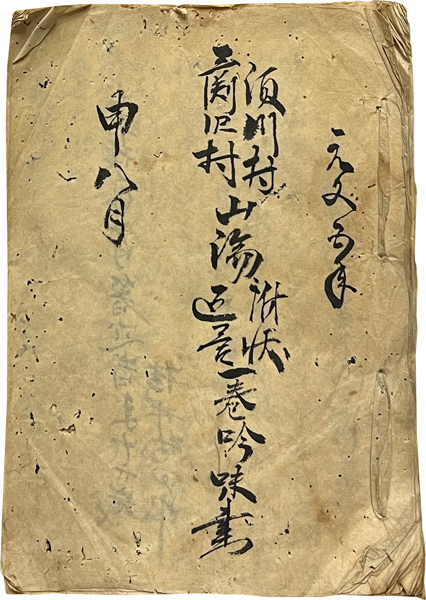 元文五年
須川村
沢村
山論
訴状
返答
一巻吟味書
申八月